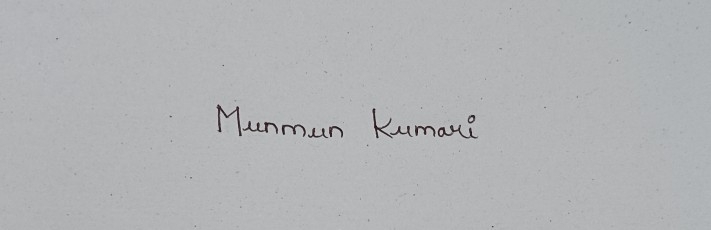 Munmun Kumari